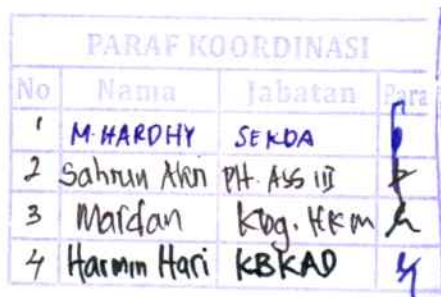 PARAF KOORDINASI
No Nama Jabatan Para
1 M. HARDHY SEKDA
2 Sahrun Akri PH. ASS III
3 Mardan Kbg. HKM
4 Harmin Hari KBKAD